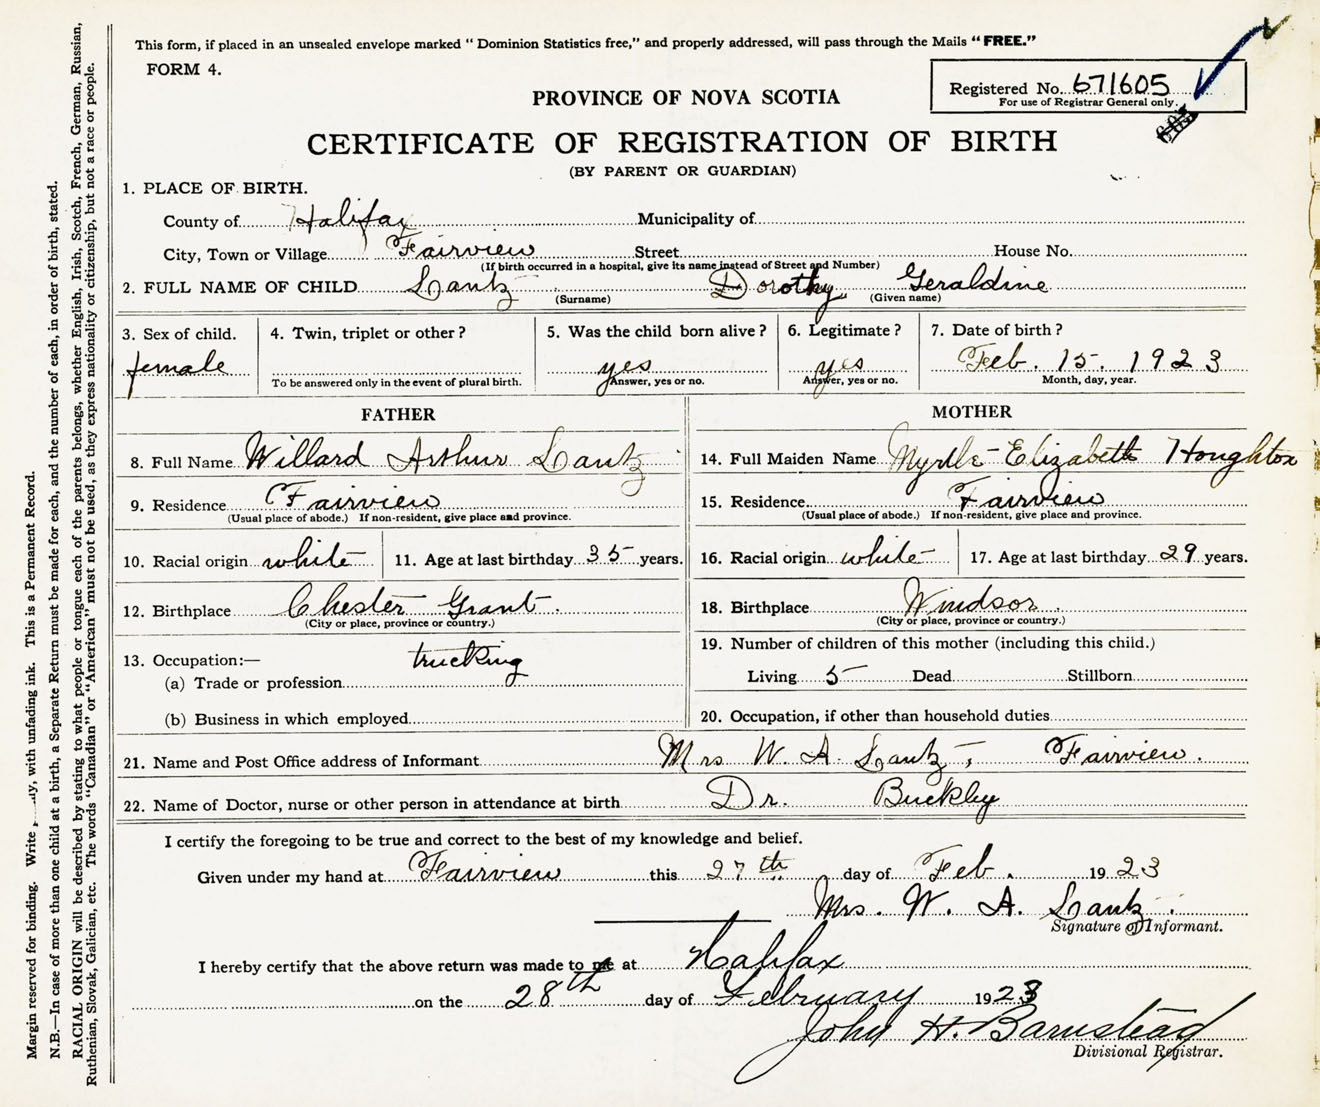 This form, if placed in an unsealed envelope marked "Dominion Statistics free," and properly addressed, will pass through the Mails "FREE."
FORM 4.
Registered No. 671605
For use of Registrar General only.
PROVINCE OF NOVA SCOTIA
CERTIFICATE OF REGISTRATION OF BIRTH
(BY PARENT OR GUARDIAN)
1. PLACE OF BIRTH.
County of Halifax Municipality of
City, Town or Village Fairview Street House No.
(If birth occurred in a hospital, give its name instead of Street and Number)
2. FULL NAME OF CHILD Lantz Dorothy Geraldine
(Surname) (Given name)
3. Sex of child. 4. Twin, triplet or other? 5. Was the child born alive? 6. Legitimate? 7. Date of birth?
female yes yes Feb. 15. 1923
To be answered only in the event of plural birth. Answer, yes or no. Answer, yes or no. Month, day, year.
FATHER
8. Full Name Willard Arthur Lantz
9. Residence Fairview
(Usual place of abode.) If non-resident, give place and province.
10. Racial origin white 11. Age at last birthday 35 years.
12. Birthplace Chester Grant.
(City or place, province or country.)
13. Occupation:— trucking
(a) Trade or profession
(b) Business in which employed
MOTHER
14. Full Maiden Name Myrtle Elizabeth Houghton
15. Residence Fairview
(Usual place of abode.) If non-resident, give place and province.
16. Racial origin white 17. Age at last birthday 29 years.
18. Birthplace Windsor.
(City or place, province or country.)
19. Number of children of this mother (including this child.)
Living 5 Dead Stillborn
20. Occupation, if other than household duties
21. Name and Post Office address of Informant Mrs W. A. Lantz, Fairview.
22. Name of Doctor, nurse or other person in attendance at birth Dr. Buckley
I certify the foregoing to be true and correct to the best of my knowledge and belief.
Given under my hand at Fairview this 27th day of Feb. 1923
Mrs. W. A. Lantz.
Signature of Informant.
I hereby certify that the above return was made to me at Halifax
on the 28th day of February 1923
John H. Barnstead
Divisional Registrar.
Margin reserved for binding. Write with unfading ink. This is a Permanent Record.
N.B.—In case of more than one child at a birth, a Separate Return must be made for each, and the number of each, in order of birth, stated.
RACIAL ORIGIN will be described by stating to what people or tongue each of the parents belongs, whether English, Irish, Scotch, French, German, Russian,
Ruthenian, Slovak, Galician, etc. The words "Canadian" or "American" must not be used, as they express nationality or citizenship, but not a race or people.